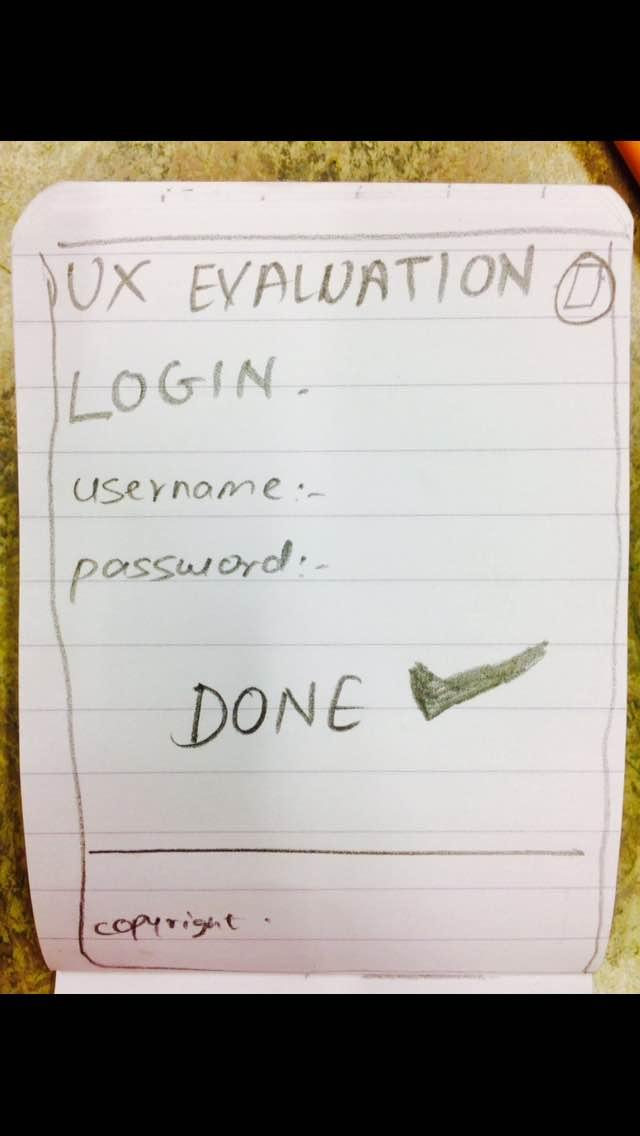 UX EVALUATION
LOGIN.
username:-
password:-
DONE
copyright.